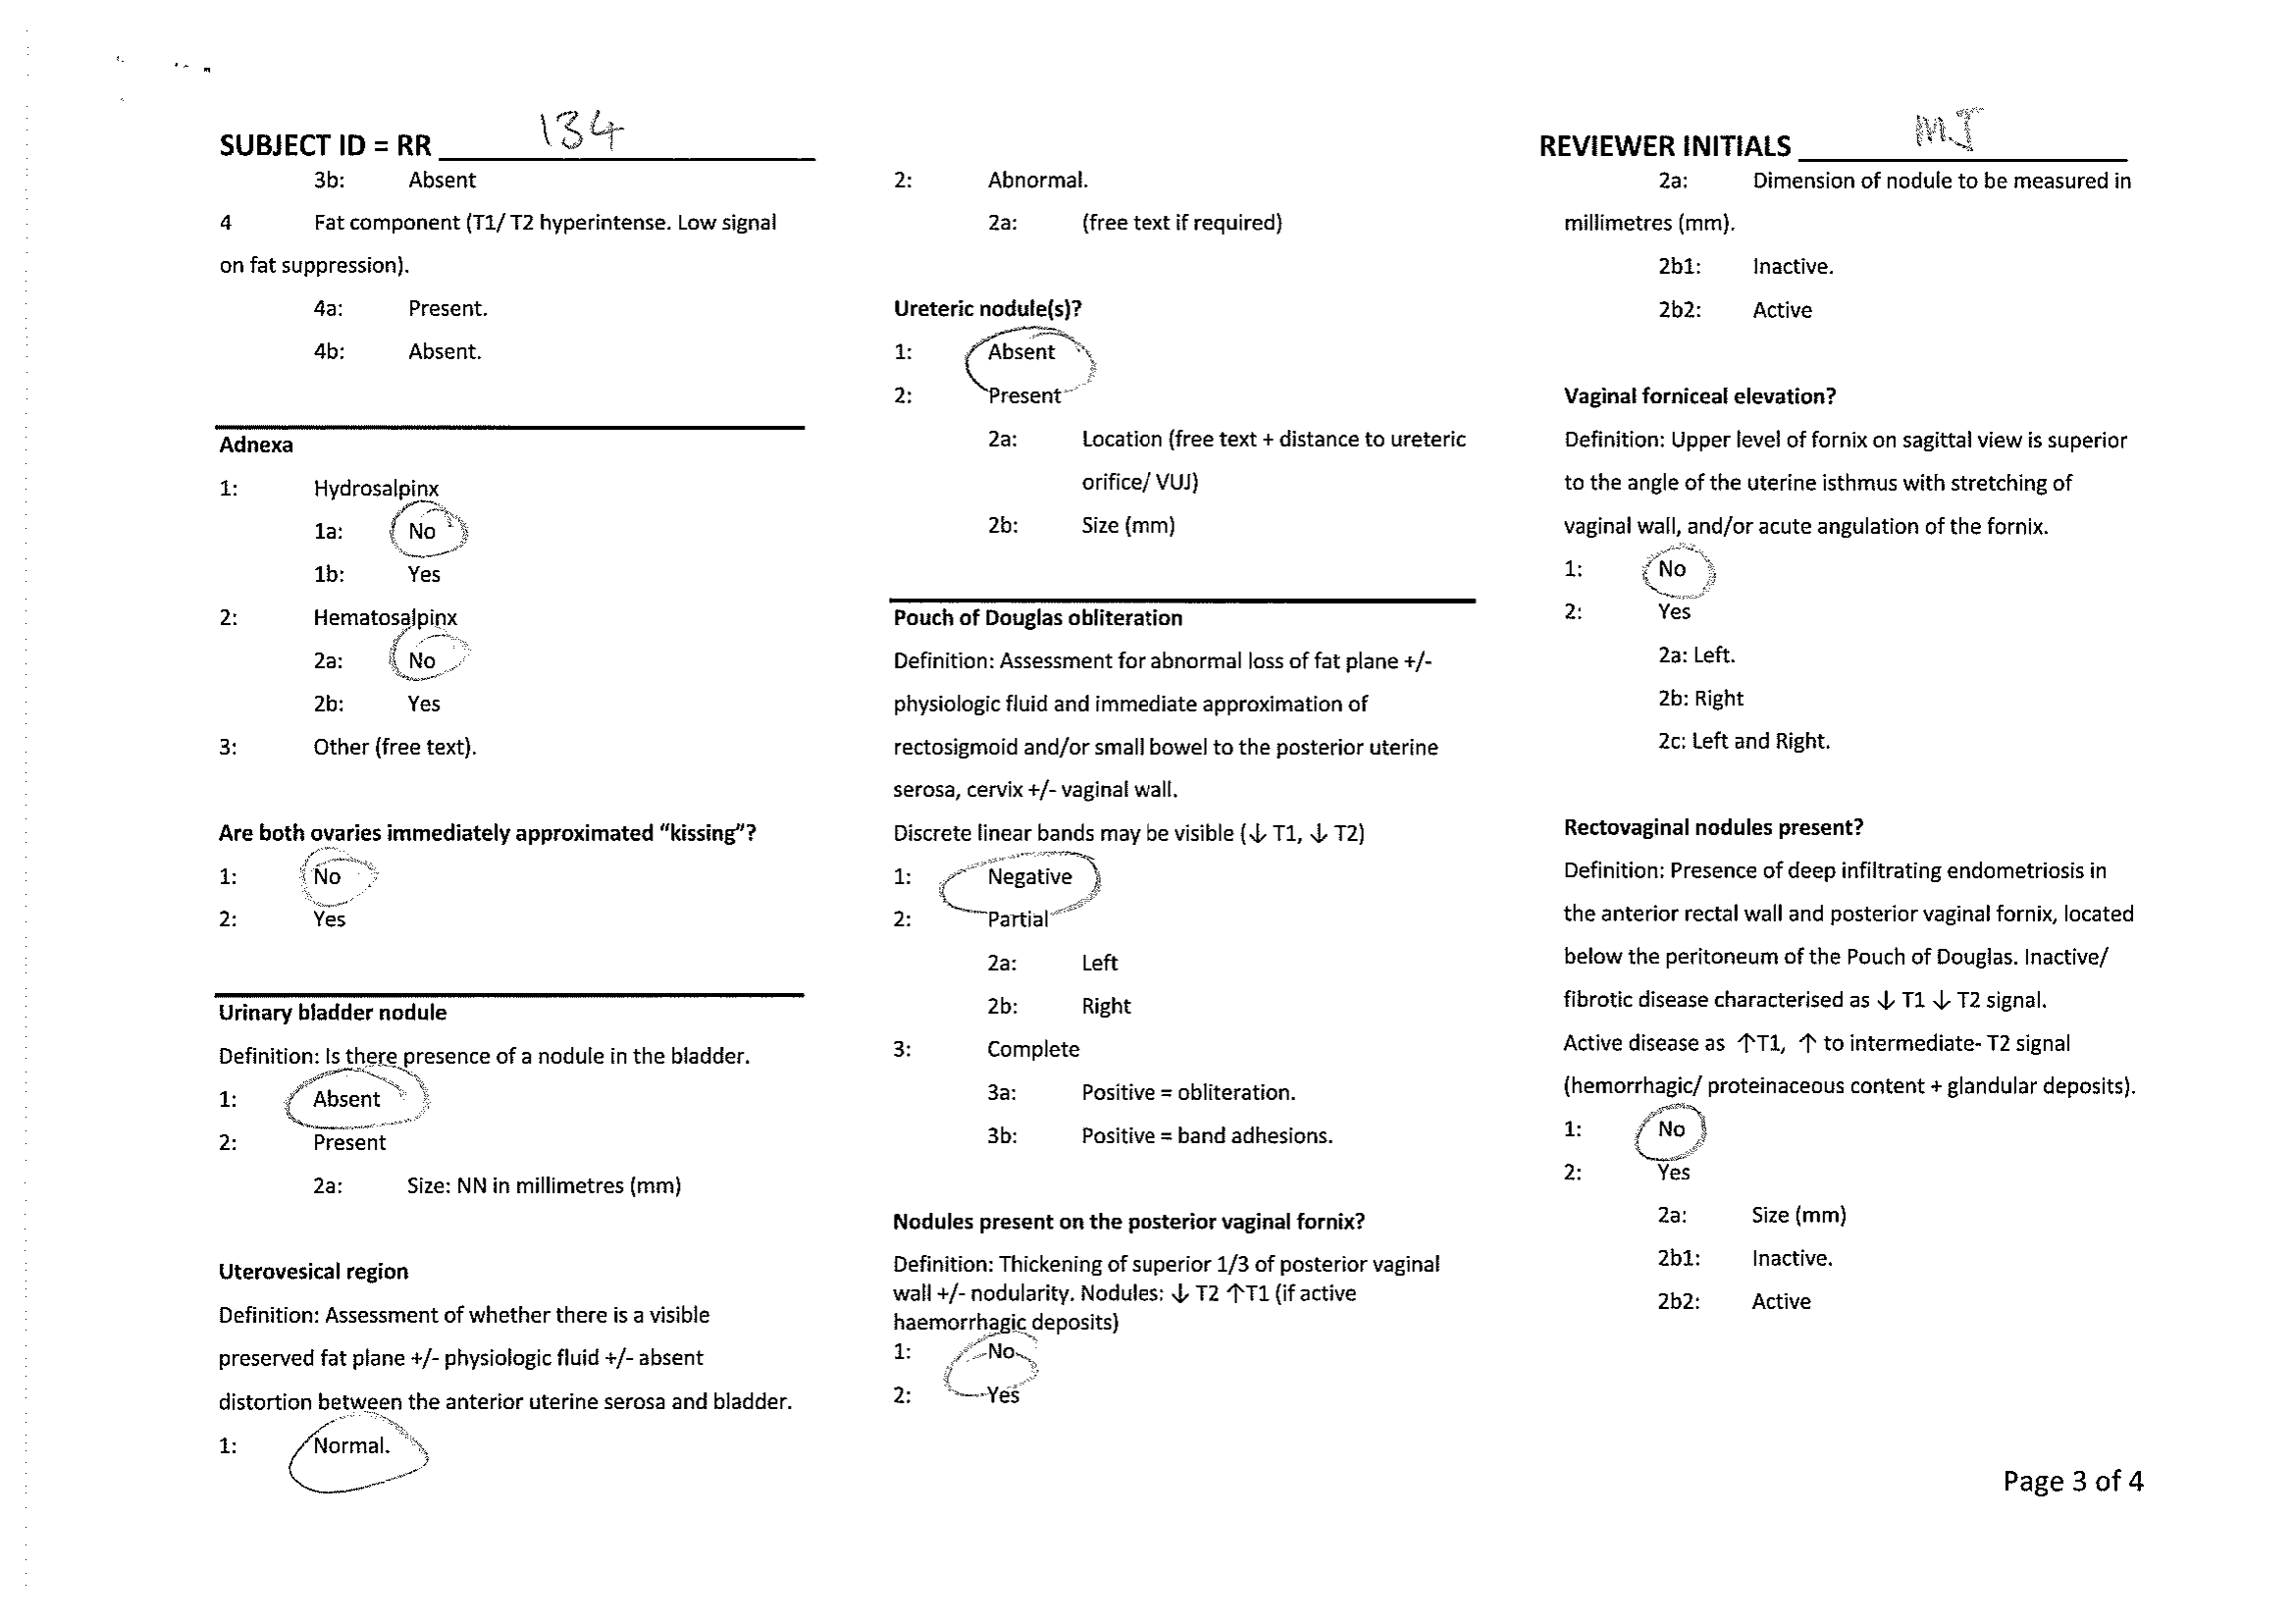 SUBJECT ID = RR 134
REVIEWER INITIALS MJ
3b: Absent
4 Fat component (T1/ T2 hyperintense. Low signal
on fat suppression).
4a: Present.
4b: Absent.
Adnexa
1: Hydrosalpinx
1a: No
1b: Yes
2: Hematosalpinx
2a: No
2b: Yes
3: Other (free text).
Are both ovaries immediately approximated “kissing”?
1: No
2: Yes
Urinary bladder nodule
Definition: Is there presence of a nodule in the bladder.
1: Absent
2: Present
2a: Size: NN in millimetres (mm)
Uterovesical region
Definition: Assessment of whether there is a visible
preserved fat plane +/- physiologic fluid +/- absent
distortion between the anterior uterine serosa and bladder.
1: Normal.
2: Abnormal.
2a: (free text if required)
Ureteric nodule(s)?
1: Absent
2: Present
2a: Location (free text + distance to ureteric
orifice/ VUJ)
2b: Size (mm)
Pouch of Douglas obliteration
Definition: Assessment for abnormal loss of fat plane +/-
physiologic fluid and immediate approximation of
rectosigmoid and/or small bowel to the posterior uterine
serosa, cervix +/- vaginal wall.
Discrete linear bands may be visible (↓ T1, ↓ T2)
1: Negative
2: Partial
2a: Left
2b: Right
3: Complete
3a: Positive = obliteration.
3b: Positive = band adhesions.
Nodules present on the posterior vaginal fornix?
Definition: Thickening of superior 1/3 of posterior vaginal
wall +/- nodularity. Nodules: ↓ T2 ↑T1 (if active
haemorrhagic deposits)
1: No
2: Yes
2a: Dimension of nodule to be measured in
millimetres (mm).
2b1: Inactive.
2b2: Active
Vaginal forniceal elevation?
Definition: Upper level of fornix on sagittal view is superior
to the angle of the uterine isthmus with stretching of
vaginal wall, and/or acute angulation of the fornix.
1: No
2: Yes
2a: Left.
2b: Right
2c: Left and Right.
Rectovaginal nodules present?
Definition: Presence of deep infiltrating endometriosis in
the anterior rectal wall and posterior vaginal fornix, located
below the peritoneum of the Pouch of Douglas. Inactive/
fibrotic disease characterised as ↓ T1 ↓ T2 signal.
Active disease as ↑T1, ↑ to intermediate- T2 signal
(hemorrhagic/ proteinaceous content + glandular deposits).
1: No
2: Yes
2a: Size (mm)
2b1: Inactive.
2b2: Active
Page 3 of 4